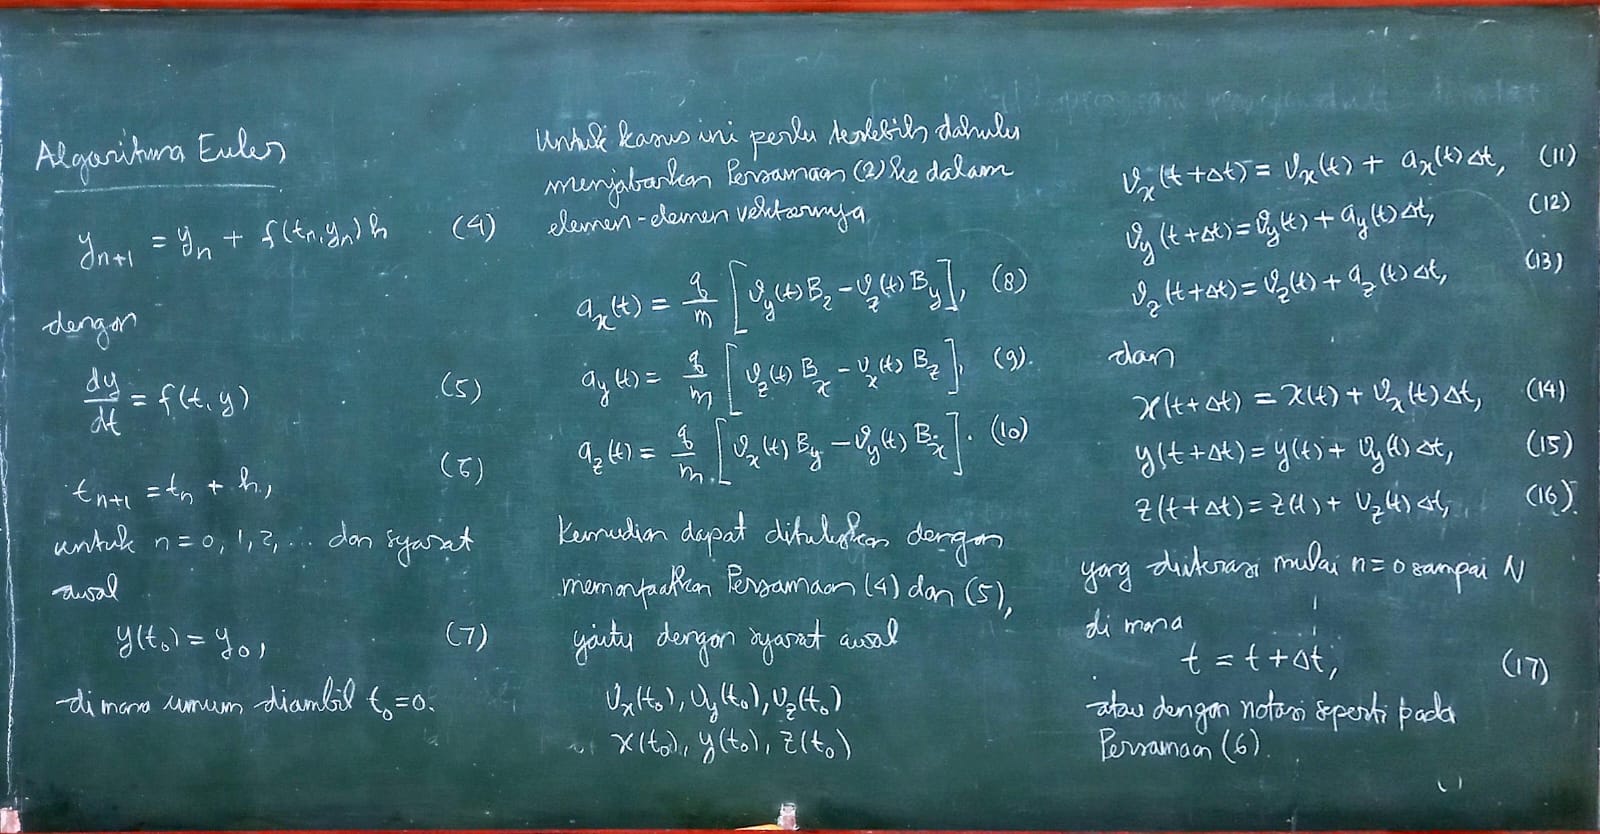 Algoritma Euler
y_{n+1} = y_n + f(t_n, y_n) h (4)
dengan
dy/dt = f(t, y) (5)
t_{n+1} = t_n + h, (6)
untuk n = 0, 1, 2, ... dan syarat
awal
y(t_0) = y_0, (7)
di mana umum diambil t_0 = 0.
Untuk kasus ini perlu terlebih dahulu
menjabarkan Persamaan (2) ke dalam
elemen-elemen vektornya
a_x(t) = q/m [v_y(t) B_z - v_z(t) B_y], (8)
a_y(t) = q/m [v_z(t) B_x - v_x(t) B_z], (9).
a_z(t) = q/m [v_x(t) B_y - v_y(t) B_x]. (10)
Kemudian dapat dituliskan dengan
memanfaatkan Persamaan (4) dan (5),
yaitu dengan syarat awal
v_x(t_0), v_y(t_0), v_z(t_0)
x(t_0), y(t_0), z(t_0)
v_x(t + Δt) = v_x(t) + a_x(t) Δt, (11)
v_y(t + Δt) = v_y(t) + a_y(t) Δt, (12)
v_z(t + Δt) = v_z(t) + a_z(t) Δt, (13)
dan
x(t + Δt) = x(t) + v_x(t) Δt, (14)
y(t + Δt) = y(t) + v_y(t) Δt, (15)
z(t + Δt) = z(t) + v_z(t) Δt, (16)
yang diiterasi mulai n = 0 sampai N
di mana
t = t + Δt, (17)
atau dengan notasi seperti pada
Persamaan (6).